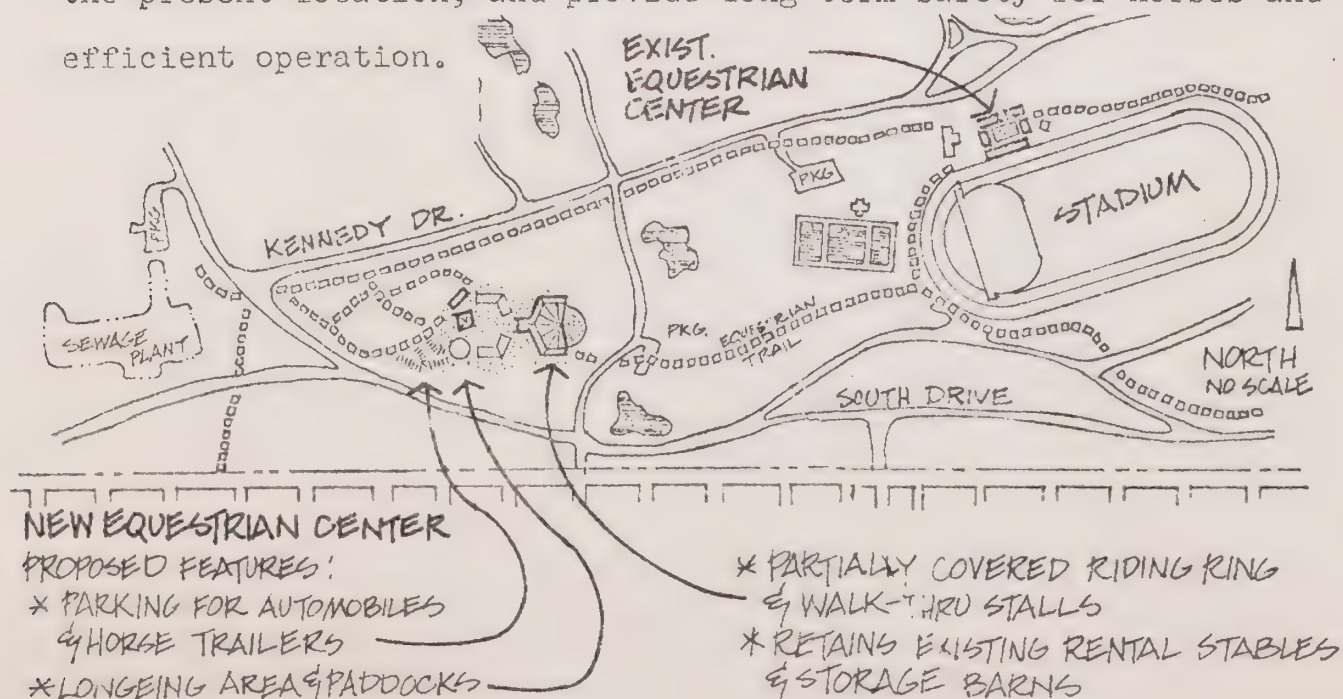 the present location, and provide long-term safety for horses and
efficient operation.
EXIST.
EQUESTRIAN
CENTER
STADIUM
PKG
KENNEDY DR.
PKG
SEWAGE
PLANT
PKG.
EQUESTRIAN
TRAIL
SOUTH DRIVE
NORTH
NO SCALE
NEW EQUESTRIAN CENTER
PROPOSED FEATURES:
* PARKING FOR AUTOMOBILES
& HORSE TRAILERS
* LONGEING AREA & PADDOCKS
* PARTIALLY COVERED RIDING RING
& WALK-THRU STALLS
* RETAINS EXISTING RENTAL STABLES
& STORAGE BARNS